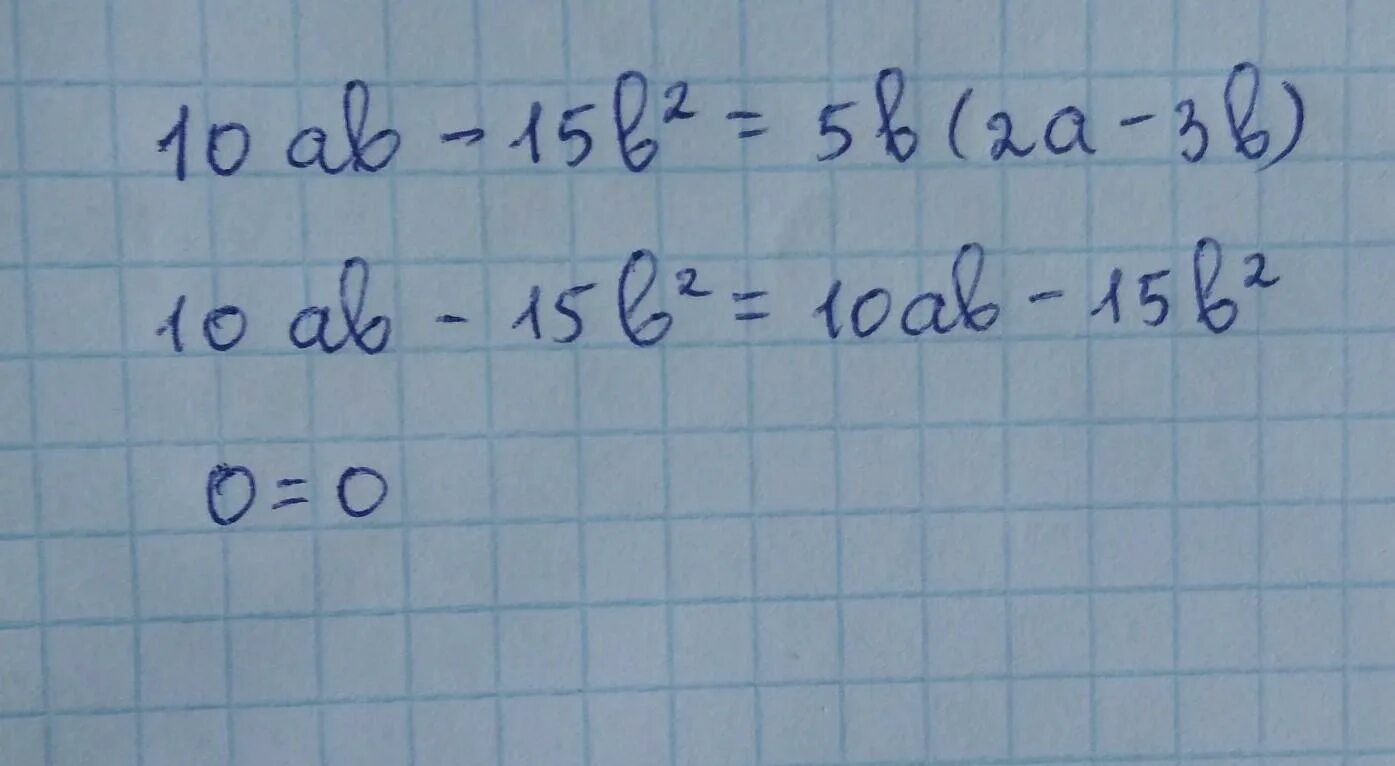 10 ab - 15b² = 5b (2a - 3b)
10 ab - 15b² = 10ab - 15b²
0 = 0